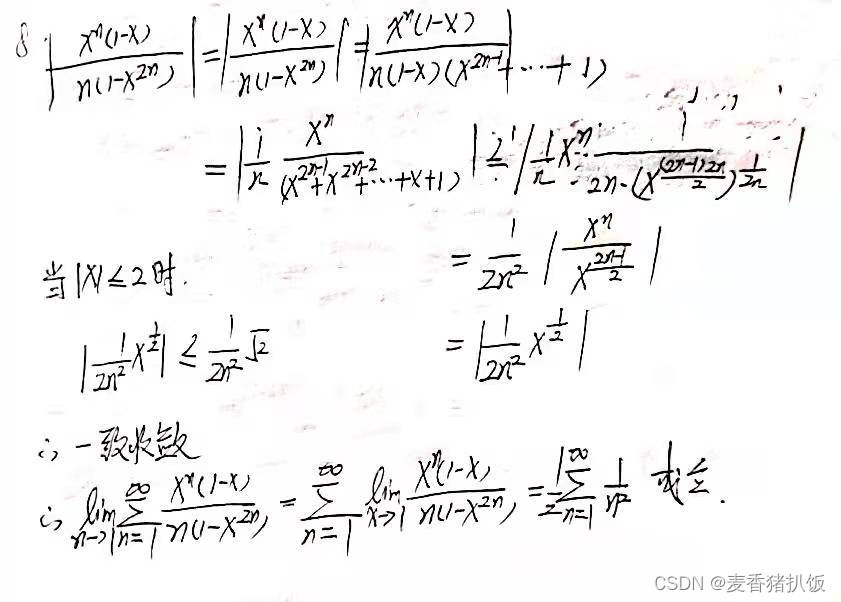 8. |x^n(1-x) / n(1-x^{2n})| = |x^n(1-x) / n(1-x^{2n})| = |x^n(1-x) / n(1-x)(x^{2n-1}+⋯+1)|
= |1/n x^n / (x^{2n-1}+x^{2n-2}+⋯+x+1)| ≤ |1/n x^n · 1 / 2n·(x^{(2n-1)2n/2})^{1/2n}|
= 1/2n² |x^n / x^{(2n-1)/2}|
当|x|≤2时.
|1/2n² x^{1/2}| ≤ 1/2n² √2
= |1/2n² x^{1/2}|
∴ 一致收敛
∴ lim_{n→1} ∑_{n=1}^{∞} x^n(1-x) / n(1-x^{2n}) = ∑_{n=1}^{∞} lim_{x→1} x^n(1-x) / n(1-x^{2n}) = 1/2 ∑_{n=1}^{∞} 1/n² 成立.
CSDN @麦香猪扒饭